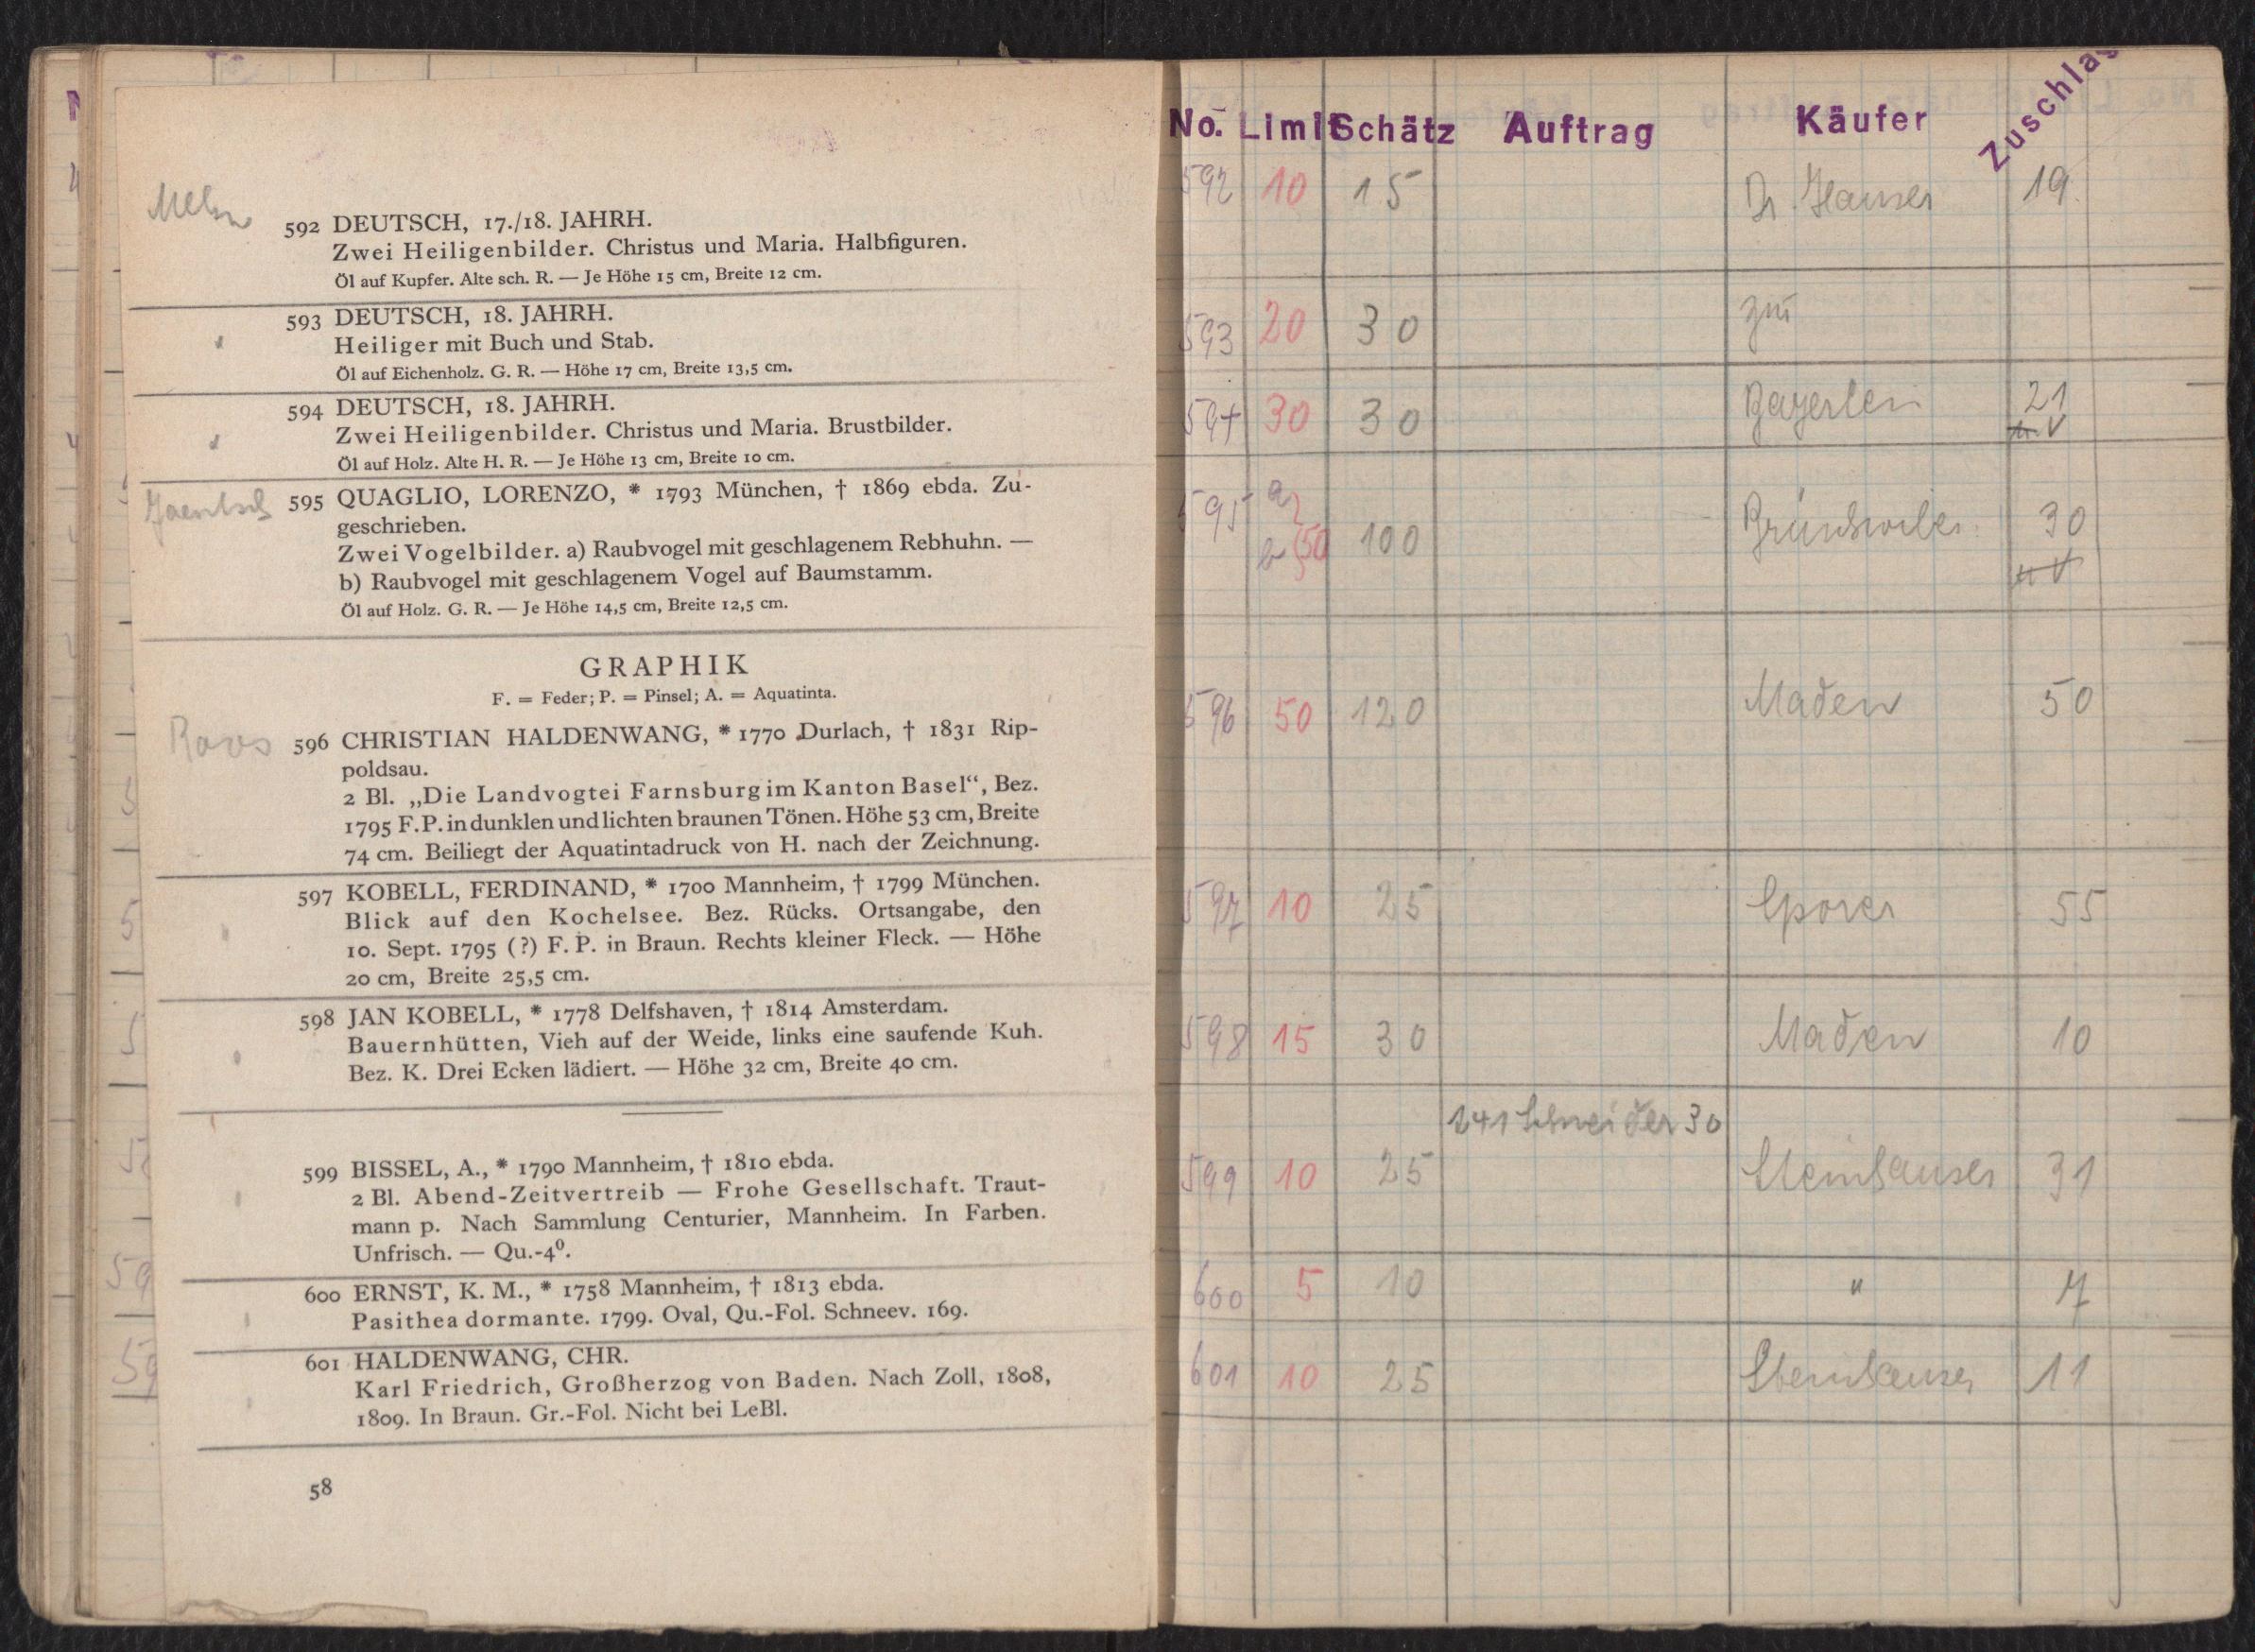 592 DEUTSCH, 17./18. JAHRH.
Zwei Heiligenbilder. Christus und Maria. Halbfiguren.
Öl auf Kupfer. Alte sch. R. — Je Höhe 15 cm, Breite 12 cm.
593 DEUTSCH, 18. JAHRH.
Heiliger mit Buch und Stab.
Öl auf Eichenholz. G. R. — Höhe 17 cm, Breite 13,5 cm.
594 DEUTSCH, 18. JAHRH.
Zwei Heiligenbilder. Christus und Maria. Brustbilder.
Öl auf Holz. Alte H. R. — Je Höhe 13 cm, Breite 10 cm.
595 QUAGLIO, LORENZO, * 1793 München, † 1869 ebda. Zu-
geschrieben.
Zwei Vogelbilder. a) Raubvogel mit geschlagenem Rebhuhn. —
b) Raubvogel mit geschlagenem Vogel auf Baumstamm.
Öl auf Holz. G. R. — Je Höhe 14,5 cm, Breite 12,5 cm.
GRAPHIK
F. = Feder; P. = Pinsel; A. = Aquatinta.
Roos
596 CHRISTIAN HALDENWANG, * 1770 Durlach, † 1831 Rip-
poldsau.
2 Bl. „Die Landvogtei Farnsburg im Kanton Basel“, Bez.
1795 F. P. in dunklen und lichten braunen Tönen. Höhe 53 cm, Breite
74 cm. Beiliegt der Aquatintadruck von H. nach der Zeichnung.
597 KOBELL, FERDINAND, * 1700 Mannheim, † 1799 München.
Blick auf den Kochelsee. Bez. Rücks. Ortsangabe, den
10. Sept. 1795 (?) F. P. in Braun. Rechts kleiner Fleck. — Höhe
20 cm, Breite 25,5 cm.
598 JAN KOBELL, * 1778 Delfshaven, † 1814 Amsterdam.
Bauernhütten, Vieh auf der Weide, links eine saufende Kuh.
Bez. K. Drei Ecken lädiert. — Höhe 32 cm, Breite 40 cm.
599 BISSEL, A., * 1790 Mannheim, † 1810 ebda.
2 Bl. Abend-Zeitvertreib — Frohe Gesellschaft. Traut-
mann p. Nach Sammlung Centurier, Mannheim. In Farben.
Unfrisch. — Qu.-4⁰.
600 ERNST, K. M., * 1758 Mannheim, † 1813 ebda.
Pasithea dormante. 1799. Oval, Qu.-Fol. Schneev. 169.
601 HALDENWANG, CHR.
Karl Friedrich, Großherzog von Baden. Nach Zoll, 1808,
1809. In Braun. Gr.-Fol. Nicht bei LeBl.
58
No. Limit Schätz Auftrag Käufer Zuschlag
592 10 15 Dr. Hauser 19
593 20 30 zur
594 30 30 Bayerlen 21
595 a) b) 50 100 30
596 50 120 Maden 50
597 10 25 Sporer 55
598 15 30 Maden 10
241 Schneider 30
599 10 25 Steinhauser 31
600 5 10 " 7
601 10 25 Steinhauser 11